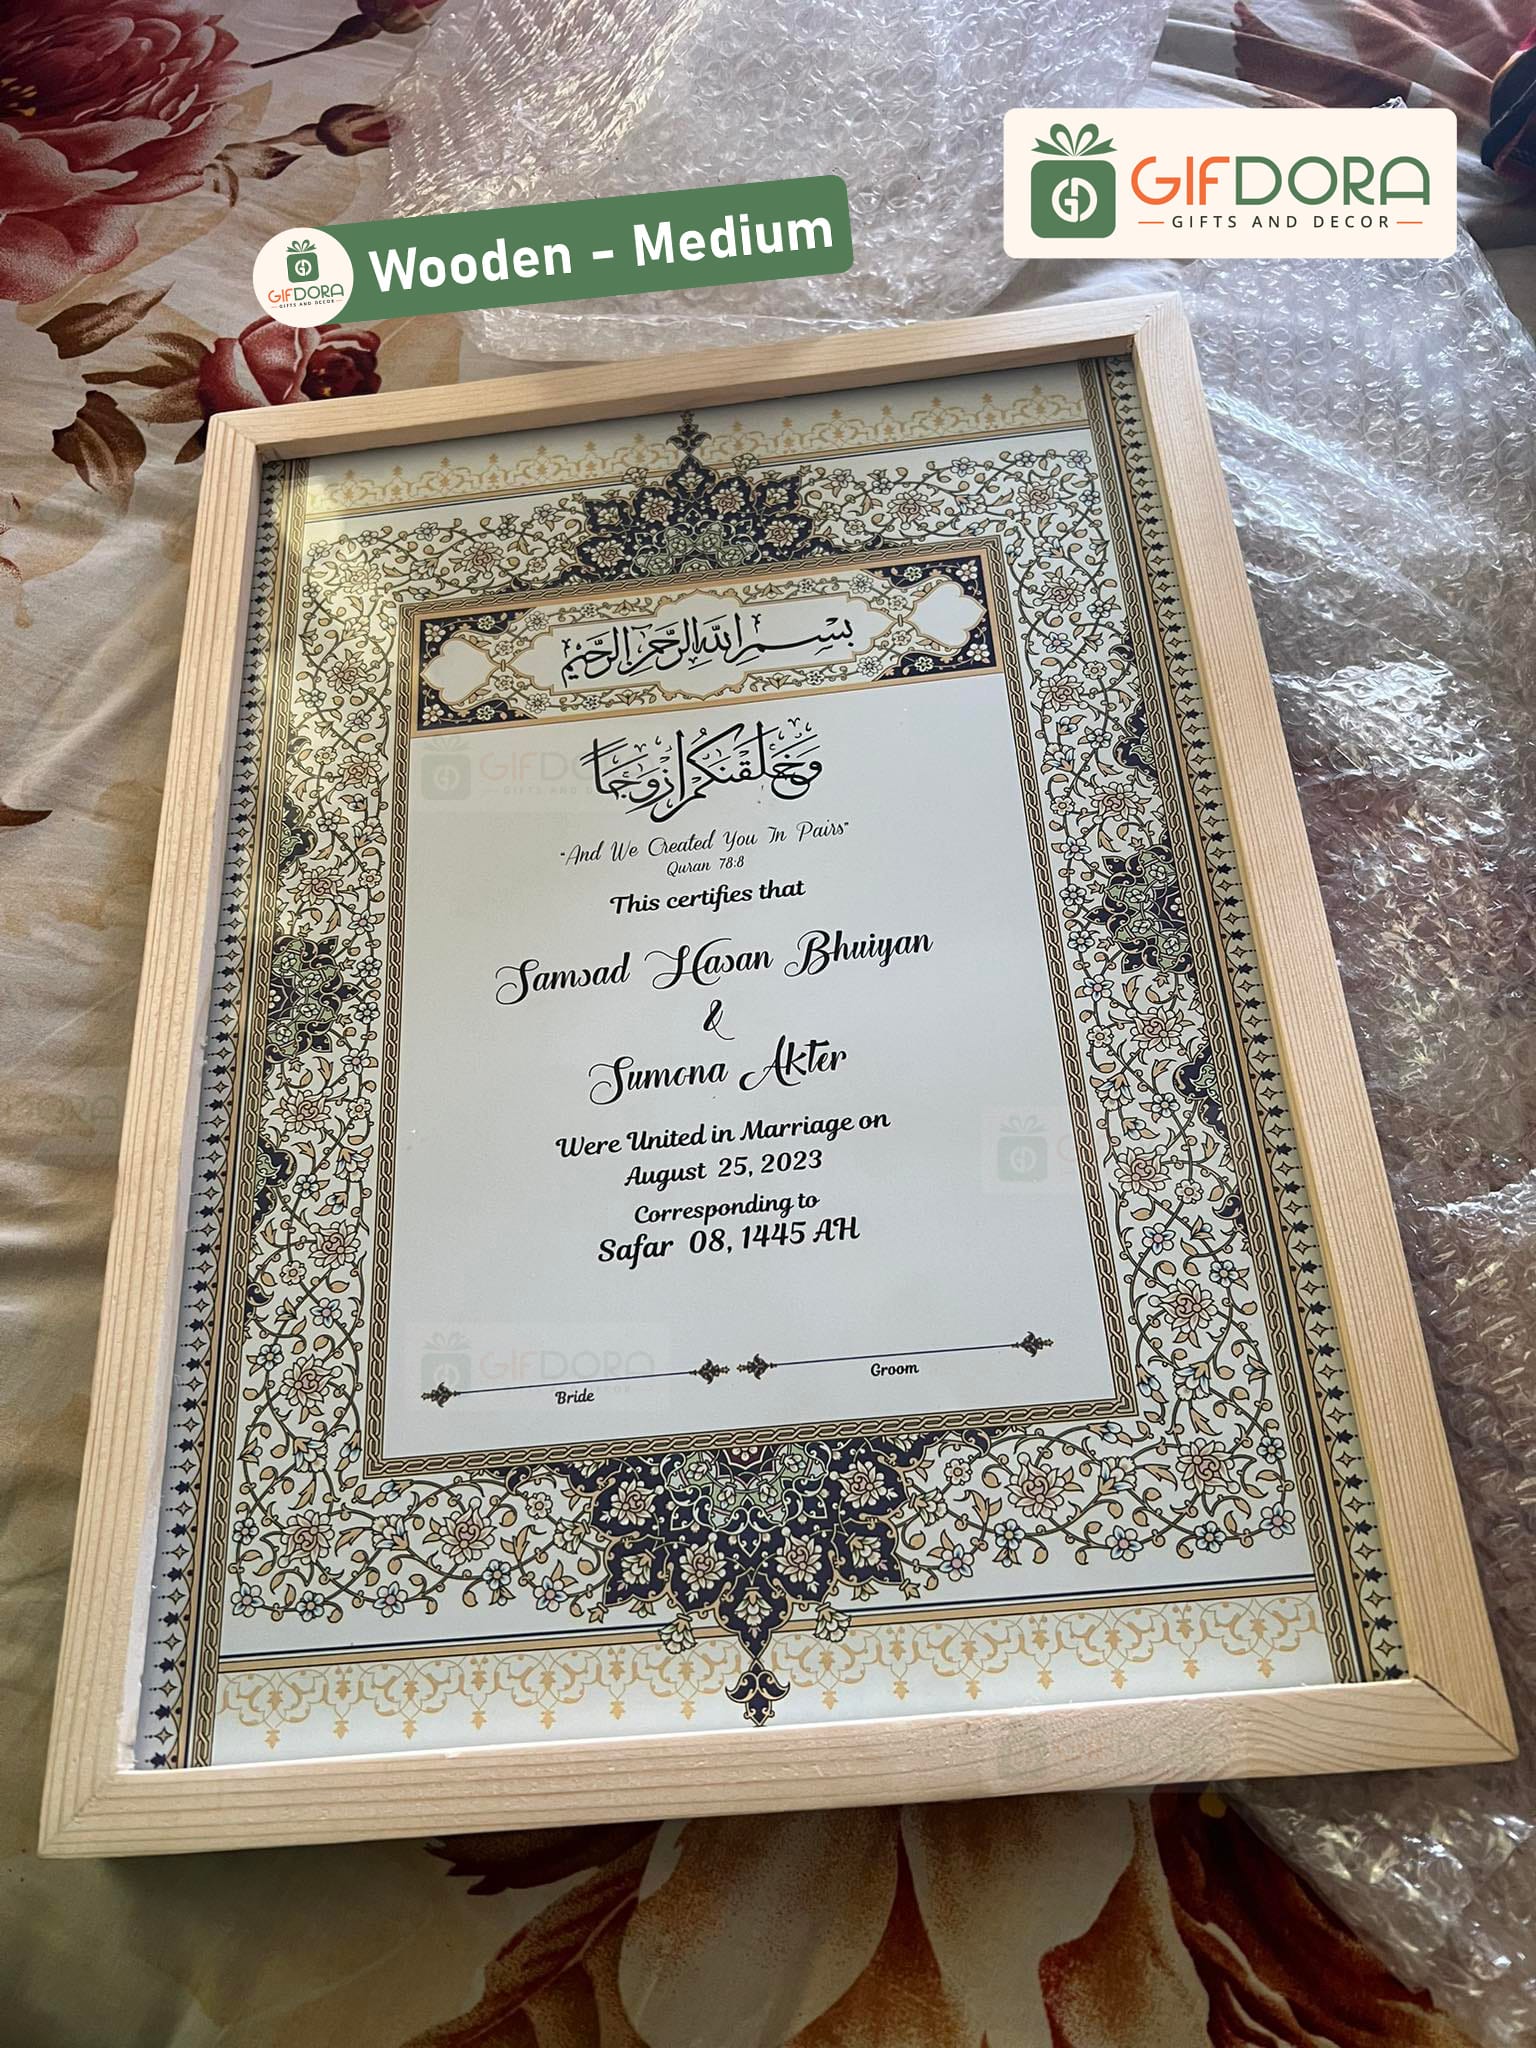 GIFDORA
GIFTS AND DECOR
GIFDORA
GIFTS AND DECOR
Wooden - Medium
بسم الله الرحمن الرحيم
وَخَلَقْنَكُمْ أَزْوَجًا
"And We Created You In Pairs"
Quran 78:8
This certifies that
Samsad Hasan Bhuiyan
&
Sumona Akter
Were United in Marriage on
August 25, 2023
Corresponding to
Safar 08, 1445 AH
Bride
Groom